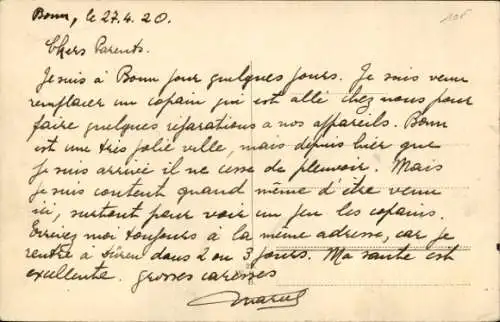 Bonn, le 27.4.20.
Chers Parents.
Je suis à Bonn pour quelques jours. Je suis venu
remplacer un copain qui est allé chez nous pour
faire quelques réparations a nos appareils. Bonn
est une très jolie ville, mais depuis hier que
je suis arrivé il ne cesse de pleuvoir. Mais
je suis content quand même d'être venu
ici, surtout pour voir un peu les copains.
Ecrivez moi toujours à la même adresse, car je
rentre à Düren dans 2 ou 3 jours. Ma santé est
excellente. grosses caresses
Marcel